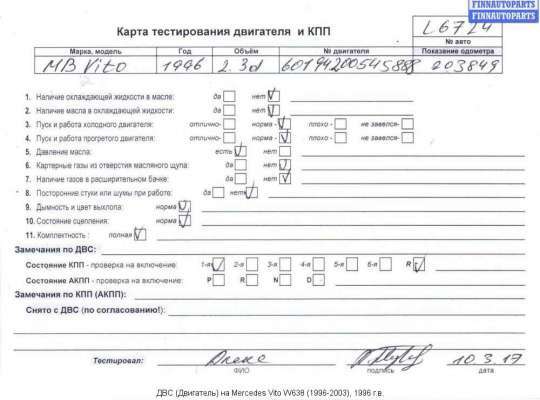 FINNAUTOPARTS
FINNAUTOPARTS
Карта тестирования двигателя и КПП
L6724
№ авто
Марка, модель Год Объём № двигателя Показание одометра
MB Vito 1996 2.3d 203849
1. Наличие охлаждающей жидкости в масле: да нет
2. Наличие масла в охлаждающей жидкости: да нет
3. Пуск и работа холодного двигателя: отлично- норма - плохо - не завелся-
4. Пуск и работа прогретого двигателя: отлично- норма - плохо - не завелся-
5. Давление масла: есть нет
6. Картерные газы из отверстия масляного щупа: да нет
7. Наличие газов в расширительном бачке: да нет
8. Посторонние стуки или шумы при работе: да нет
9. Дымность и цвет выхлопа: норма
10. Состояние сцепления: норма
11. Комплектность : полная
Замечания по ДВС:
Состояние КПП - проверка на включение: 1-я 2-я 3-я 4-я 5-я 6-я R
Состояние АКПП - проверка на включение: P R N D
Замечания по КПП (АКПП):
Снято с ДВС (по согласованию!):
Тестировал: 10.3.17
ФИО подпись дата
ДВС (Двигатель) на Mercedes Vito W638 (1996-2003), 1996 г.в.